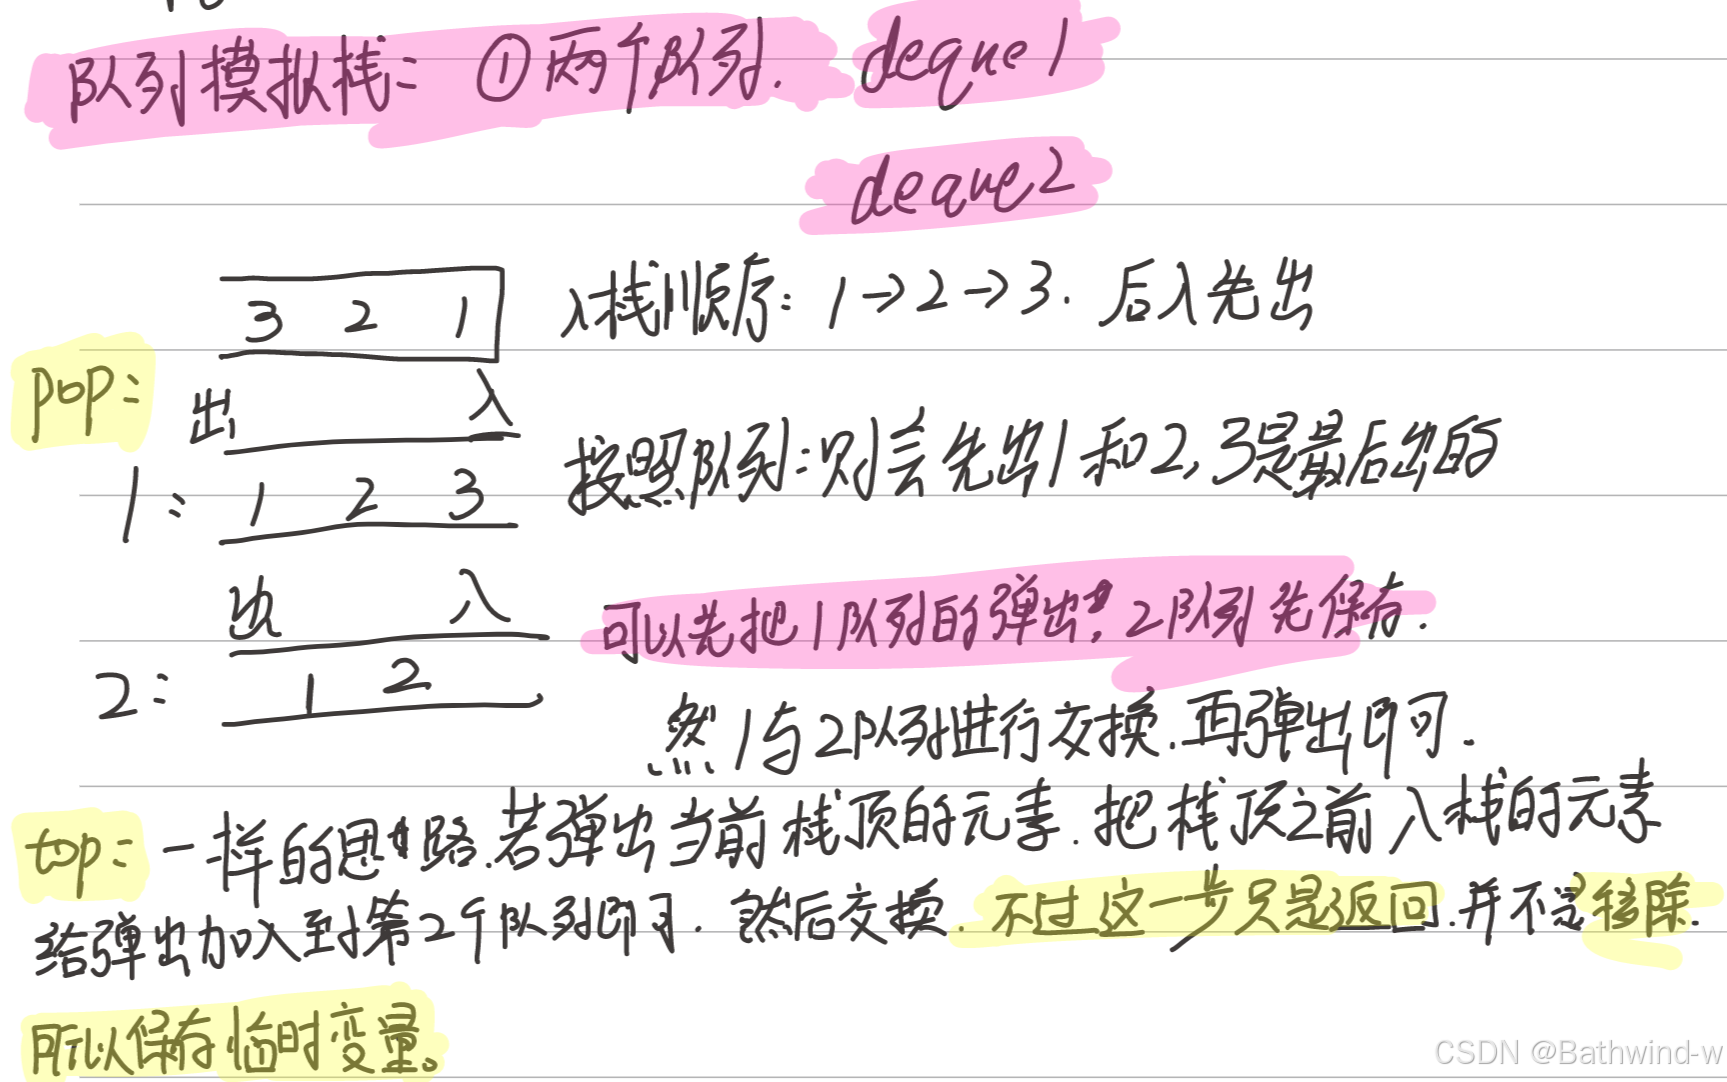 队列模拟栈: ①两个队列. deque1
deque2
3 2 1 入栈顺序: 1→2→3. 后入先出
pop:
出 入
1: 1 2 3 按照队列:则会先出1和2,3是最后出的
出 入
可以先把1队列的弹出, 2队列先保存.
2: 1 2
然1与2队列进行交换.再弹出即可.
top: 一样的思路.若弹出当前栈顶的元素.把栈顶之前入栈的元素
给弹出加入到第2个队列即可. 然后交换. 不过这一步只是返回.并不是移除.
所以保存临时变量。
CSDN @Bathwind-w